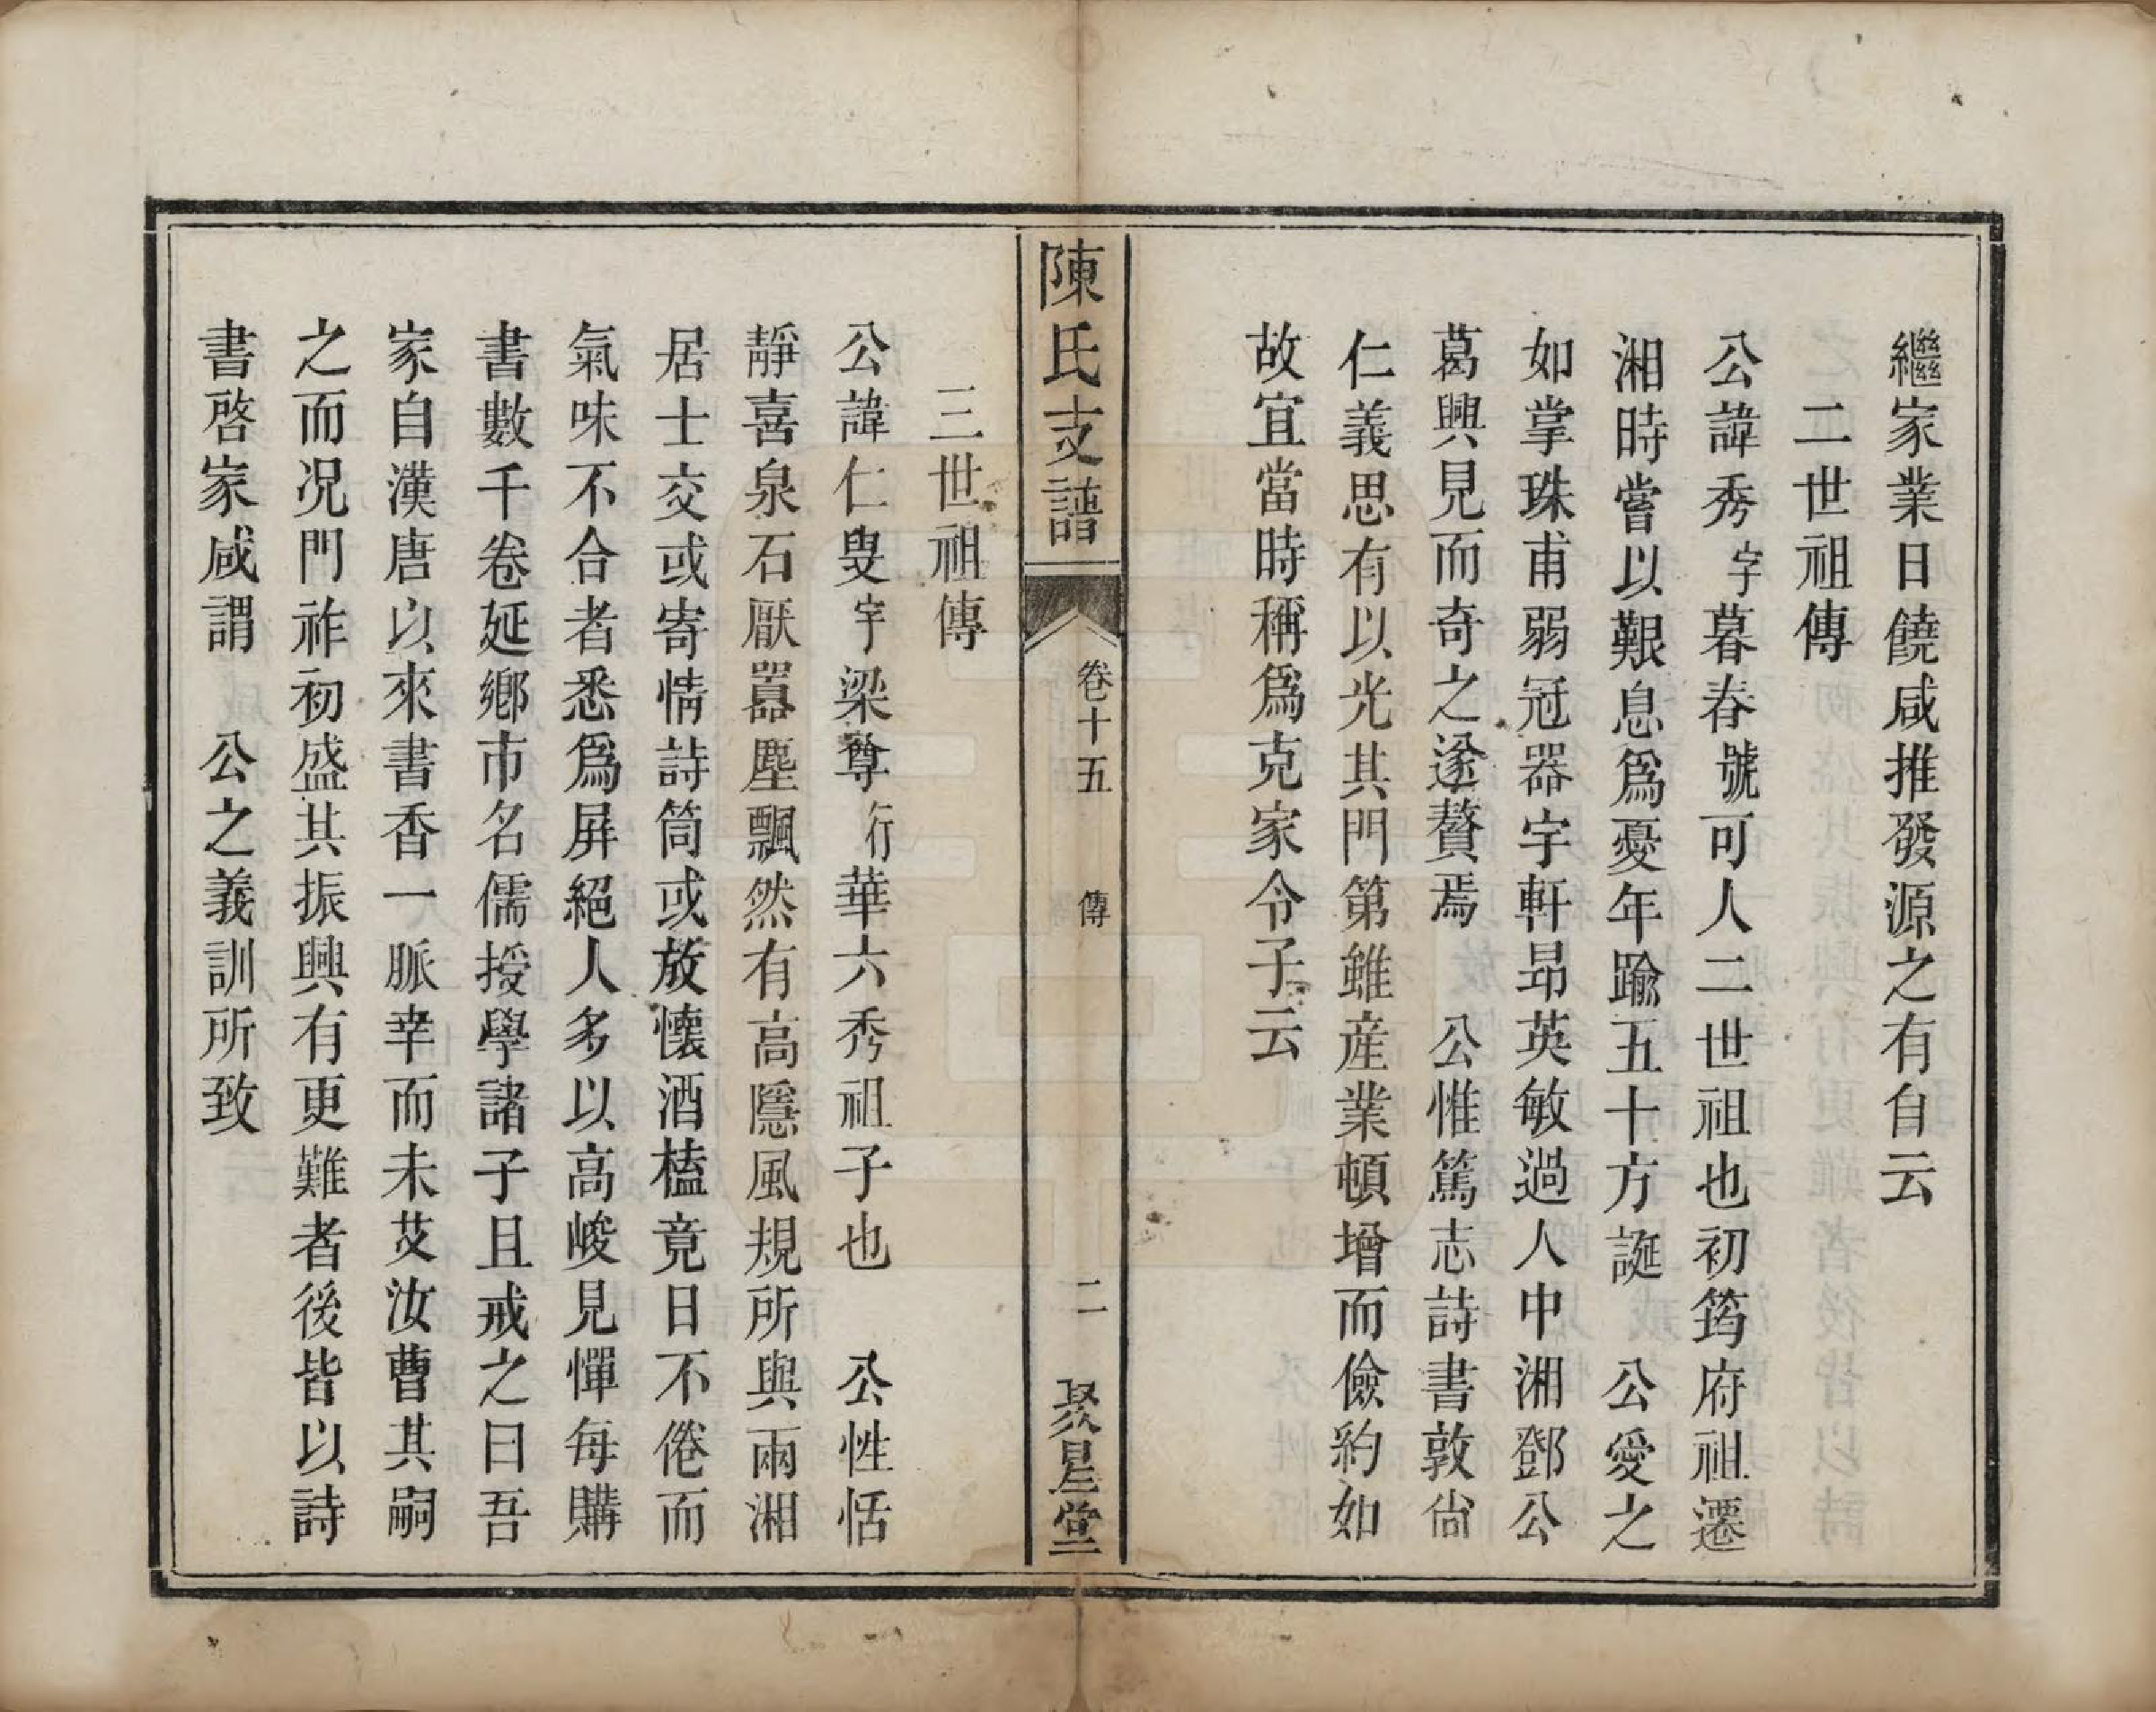 繼家業日饒咸推發源之有自云
二世祖傳
公諱秀字暮春號可人二世祖也初筠府祖遷
湘時嘗以艱息爲憂年踰五十方誕　公愛之
如掌珠甫弱冠器宇軒昂英敏過人中湘鄧公
葛興見而奇之遂贅焉　公惟篤志詩書敦尙
仁義思有以光其門第雖産業頓增而儉約如
故宜當時稱爲克家令子云
陳氏支譜
卷十五　傳　二　聚星堂
三世祖傳
公諱仁叟字梁尊行華六秀祖子也　公性恬
靜喜泉石厭囂塵飄然有高隱風規所與兩湘
居士交或寄情詩筒或放懷酒榼竟日不倦而
氣味不合者悉爲屏絕人多以高峻見憚每購
書數千卷延鄉市名儒授學諸子且戒之曰吾
家自漢唐以來書香一脈幸而未艾汝曹其嗣
之而况門祚初盛其振興有更難者後皆以詩
書啓家咸謂　公之義訓所致